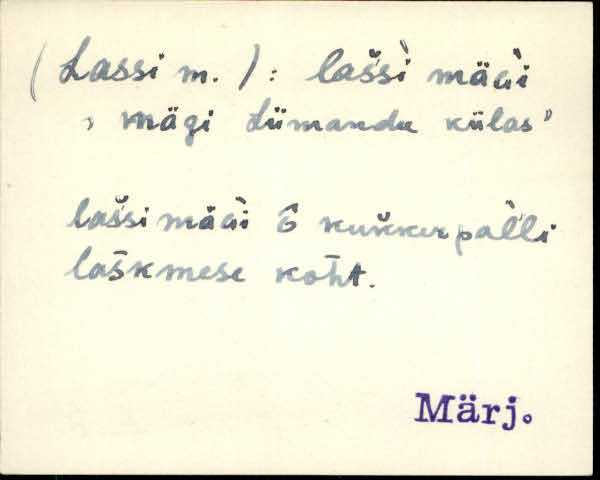 (Lassi m.): lašsì mäGì
, mägi Liimandu külas"
lašsi mäGì ó kukkerpàlli
lašk̄mese koht.
Märj.